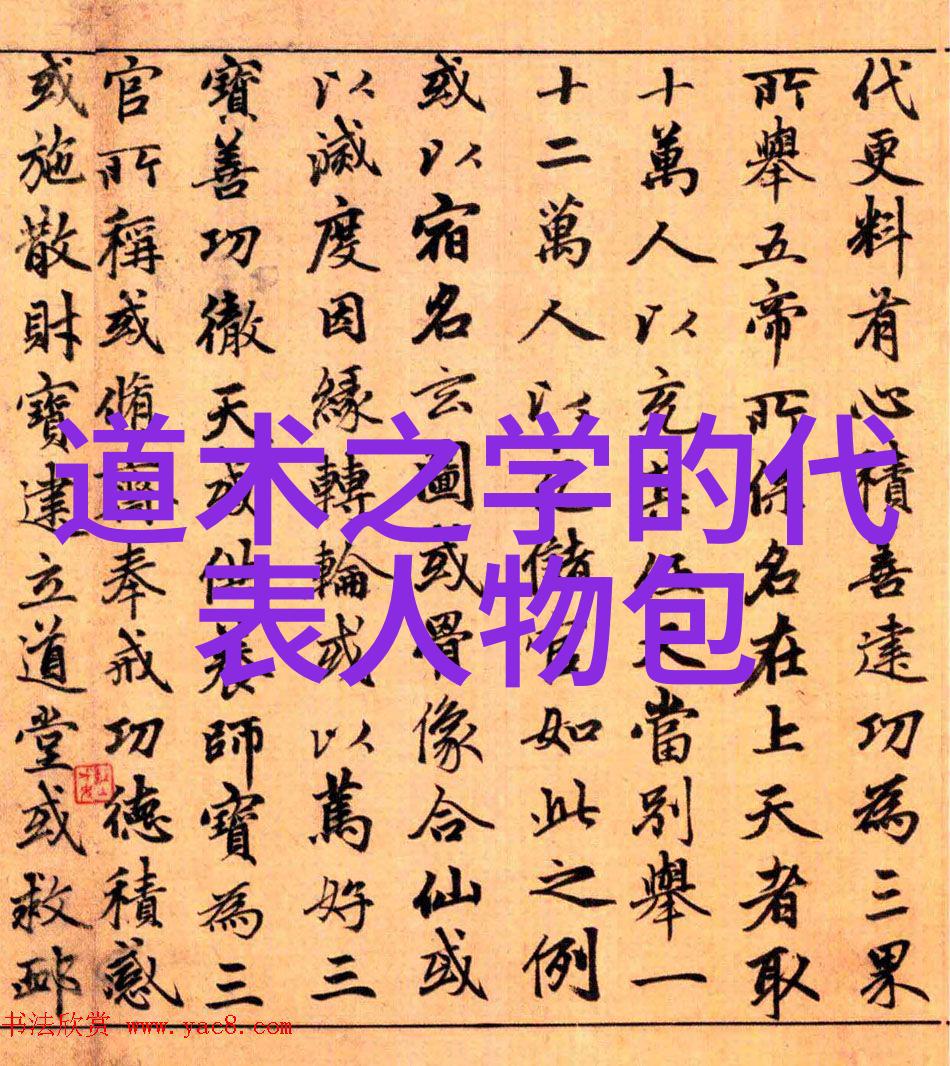 代更料有心積善建功為三果
所舉五帝所保名在上天者取
十萬人以充其任又當別舉一
十二萬人以儲官如此之例
或以宿名玄圖或骨像合仙或
以滅度因緣轉輪或以篤好三
寶善功徹天或供養師寶為三
官所稱或脩齋奉戒功德積感
或施散財寶建立道堂或救卹
道术之学的代
表人物包
书法欣赏 www.yac8.com